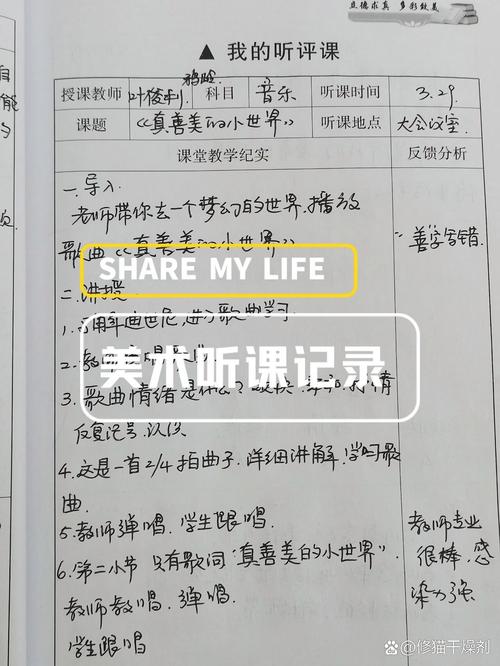 立德求真 多彩致美
▲ 我的听评课
授课教师 叶俊利 科目 音乐 听课时间 3.29
课题 《真善美的小世界》 听课地点 大会议室
课堂教学纪实 反馈分析
一.导入.
老师带你去一个梦幻的世界,播放
歌曲《真善美的小世界》
善字写错.
SHARE MY LIFE
二.讲授
1.用迪士尼,进行歌曲学习
美术听课记录
2.教师
3.歌曲情绪是什么?欢快.
反复记号.认识
4.这是一首2/4拍曲子.详细讲解.学习歌
曲.
5.教师弹唱.学生跟唱.
6.第二小节 只有歌词"真善美的小世界".
教师教唱.弹唱.
学生跟唱
教师专业
很棒.感
染力强
@修猫干燥剂